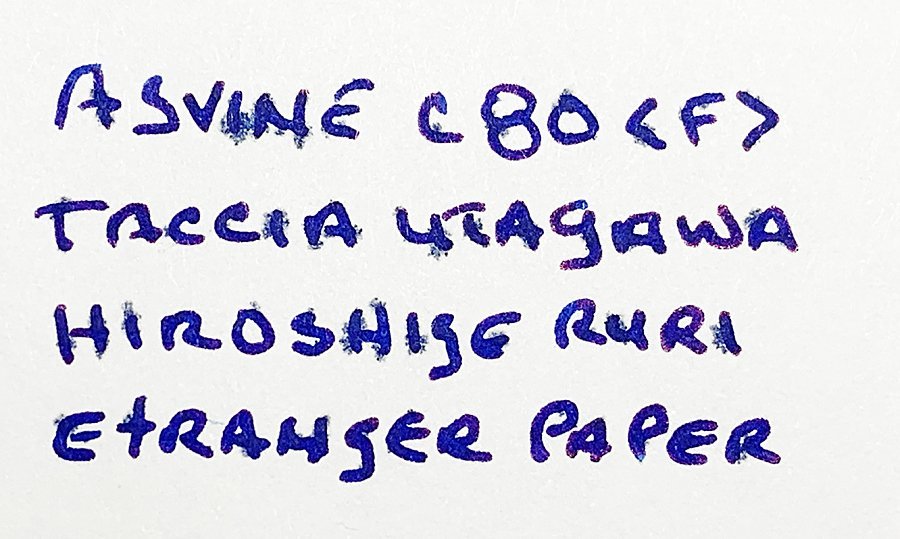 ASVINE C80 <F>
TACCIA UTAGAWA
HIROSHIGE RURI
ETRANGER PAPER